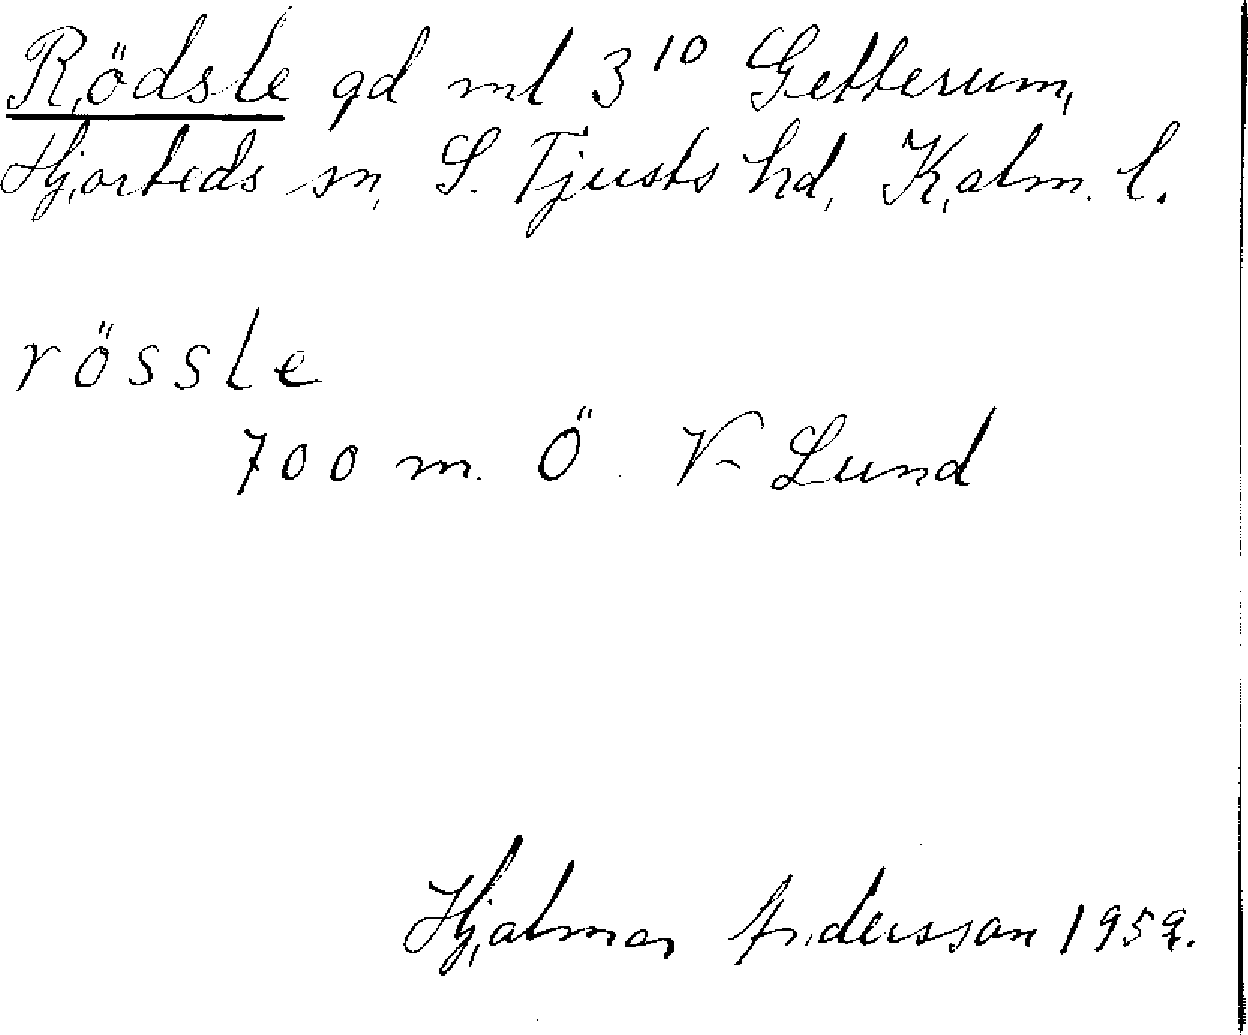 Rödsle gd ml 3¹⁰ Getterum,
Hjorteds sn, S. Tjusts hd, Kalm. l.
rössle
700 m. Ö. V Lund
Hjalmar Andersson 1959.